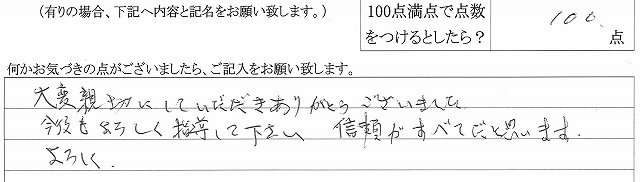 （有りの場合、下記へ内容と記名をお願い致します。）
100点満点で点数
をつけるとしたら？
100 点
何かお気づきの点がございましたら、ご記入をお願い致します。
大変親切にしていただきありがとうございました
今後もよろしく指導して下さい 信頼がすべてだと思います.
よろしく.